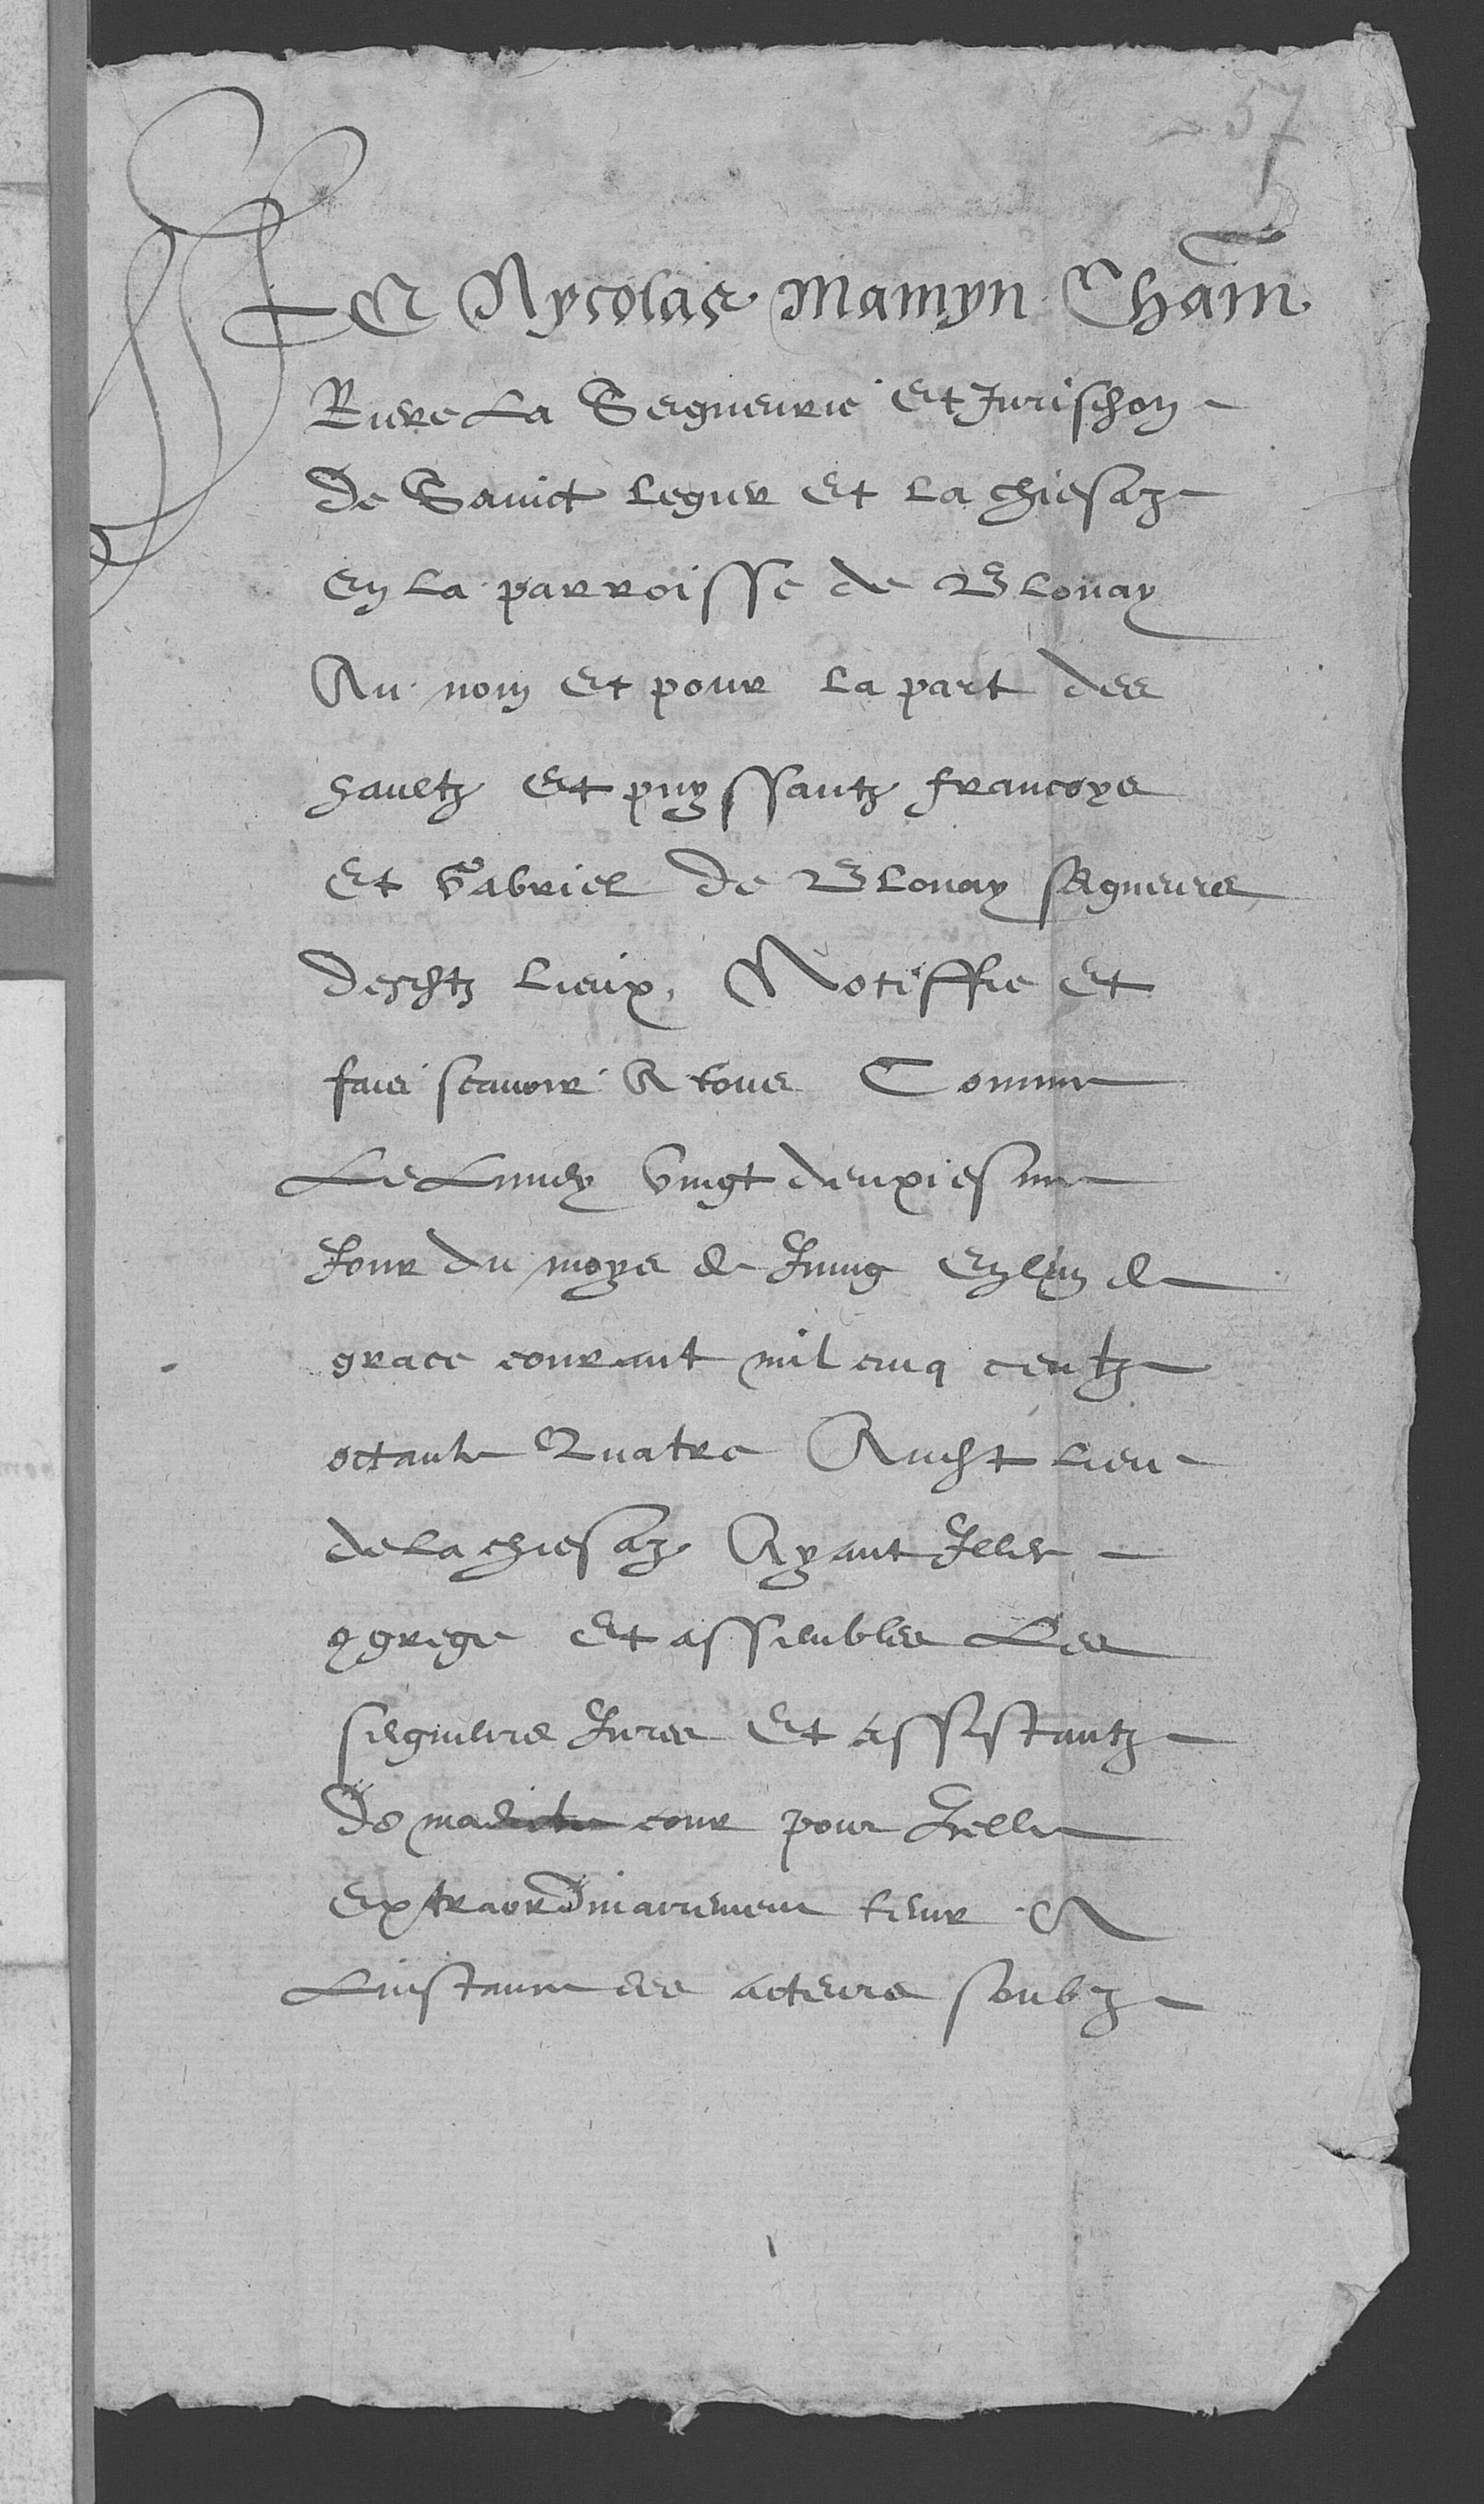 57
Je Nycolas Mamyn Cham̄
Riere La Segneurie Et Jurischon
De Sainct Legier Et La chiesaz
En La parroisse de Blonay
Au nom Et pour la part des
haultz Et puyssantz francoys
Et Gabriel de Blonay segneurs
Desdtz Lieux, Notiffie Et
fais scavoir A tous Comme
Le Lundy Vingt deuxiesme
Jour du moys de Juing En lan de
grace courant mil cinq centz
octante Quatre Audt Lieu
de la chiesaz Ayant Illec
9grege Et assembles Les
segneurs Jures Et assistantz
De madicte cour pour Icelle
Extraordinairement tenir A
Linstance des acteurs soubz